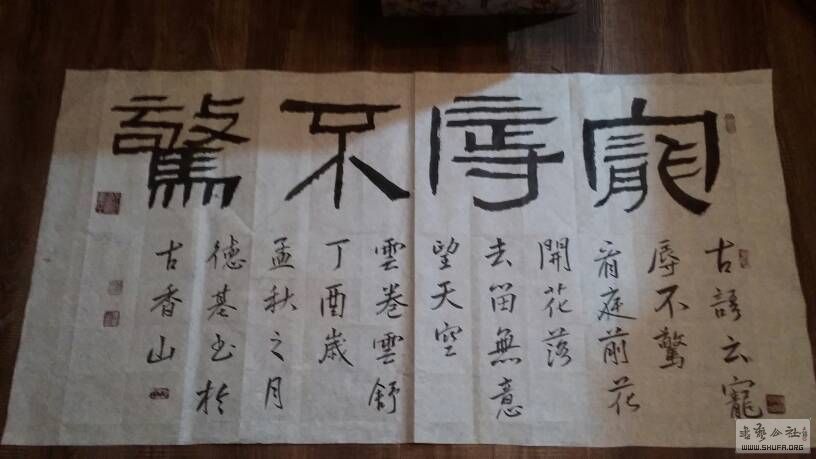 寵辱不驚
古語云寵
辱不驚
看庭前花
開花落
去留無意
望天空
雲卷雲舒
丁酉歲
孟秋之月
德基书於
古香山
书艺公社
WWW.SHUFA.ORG